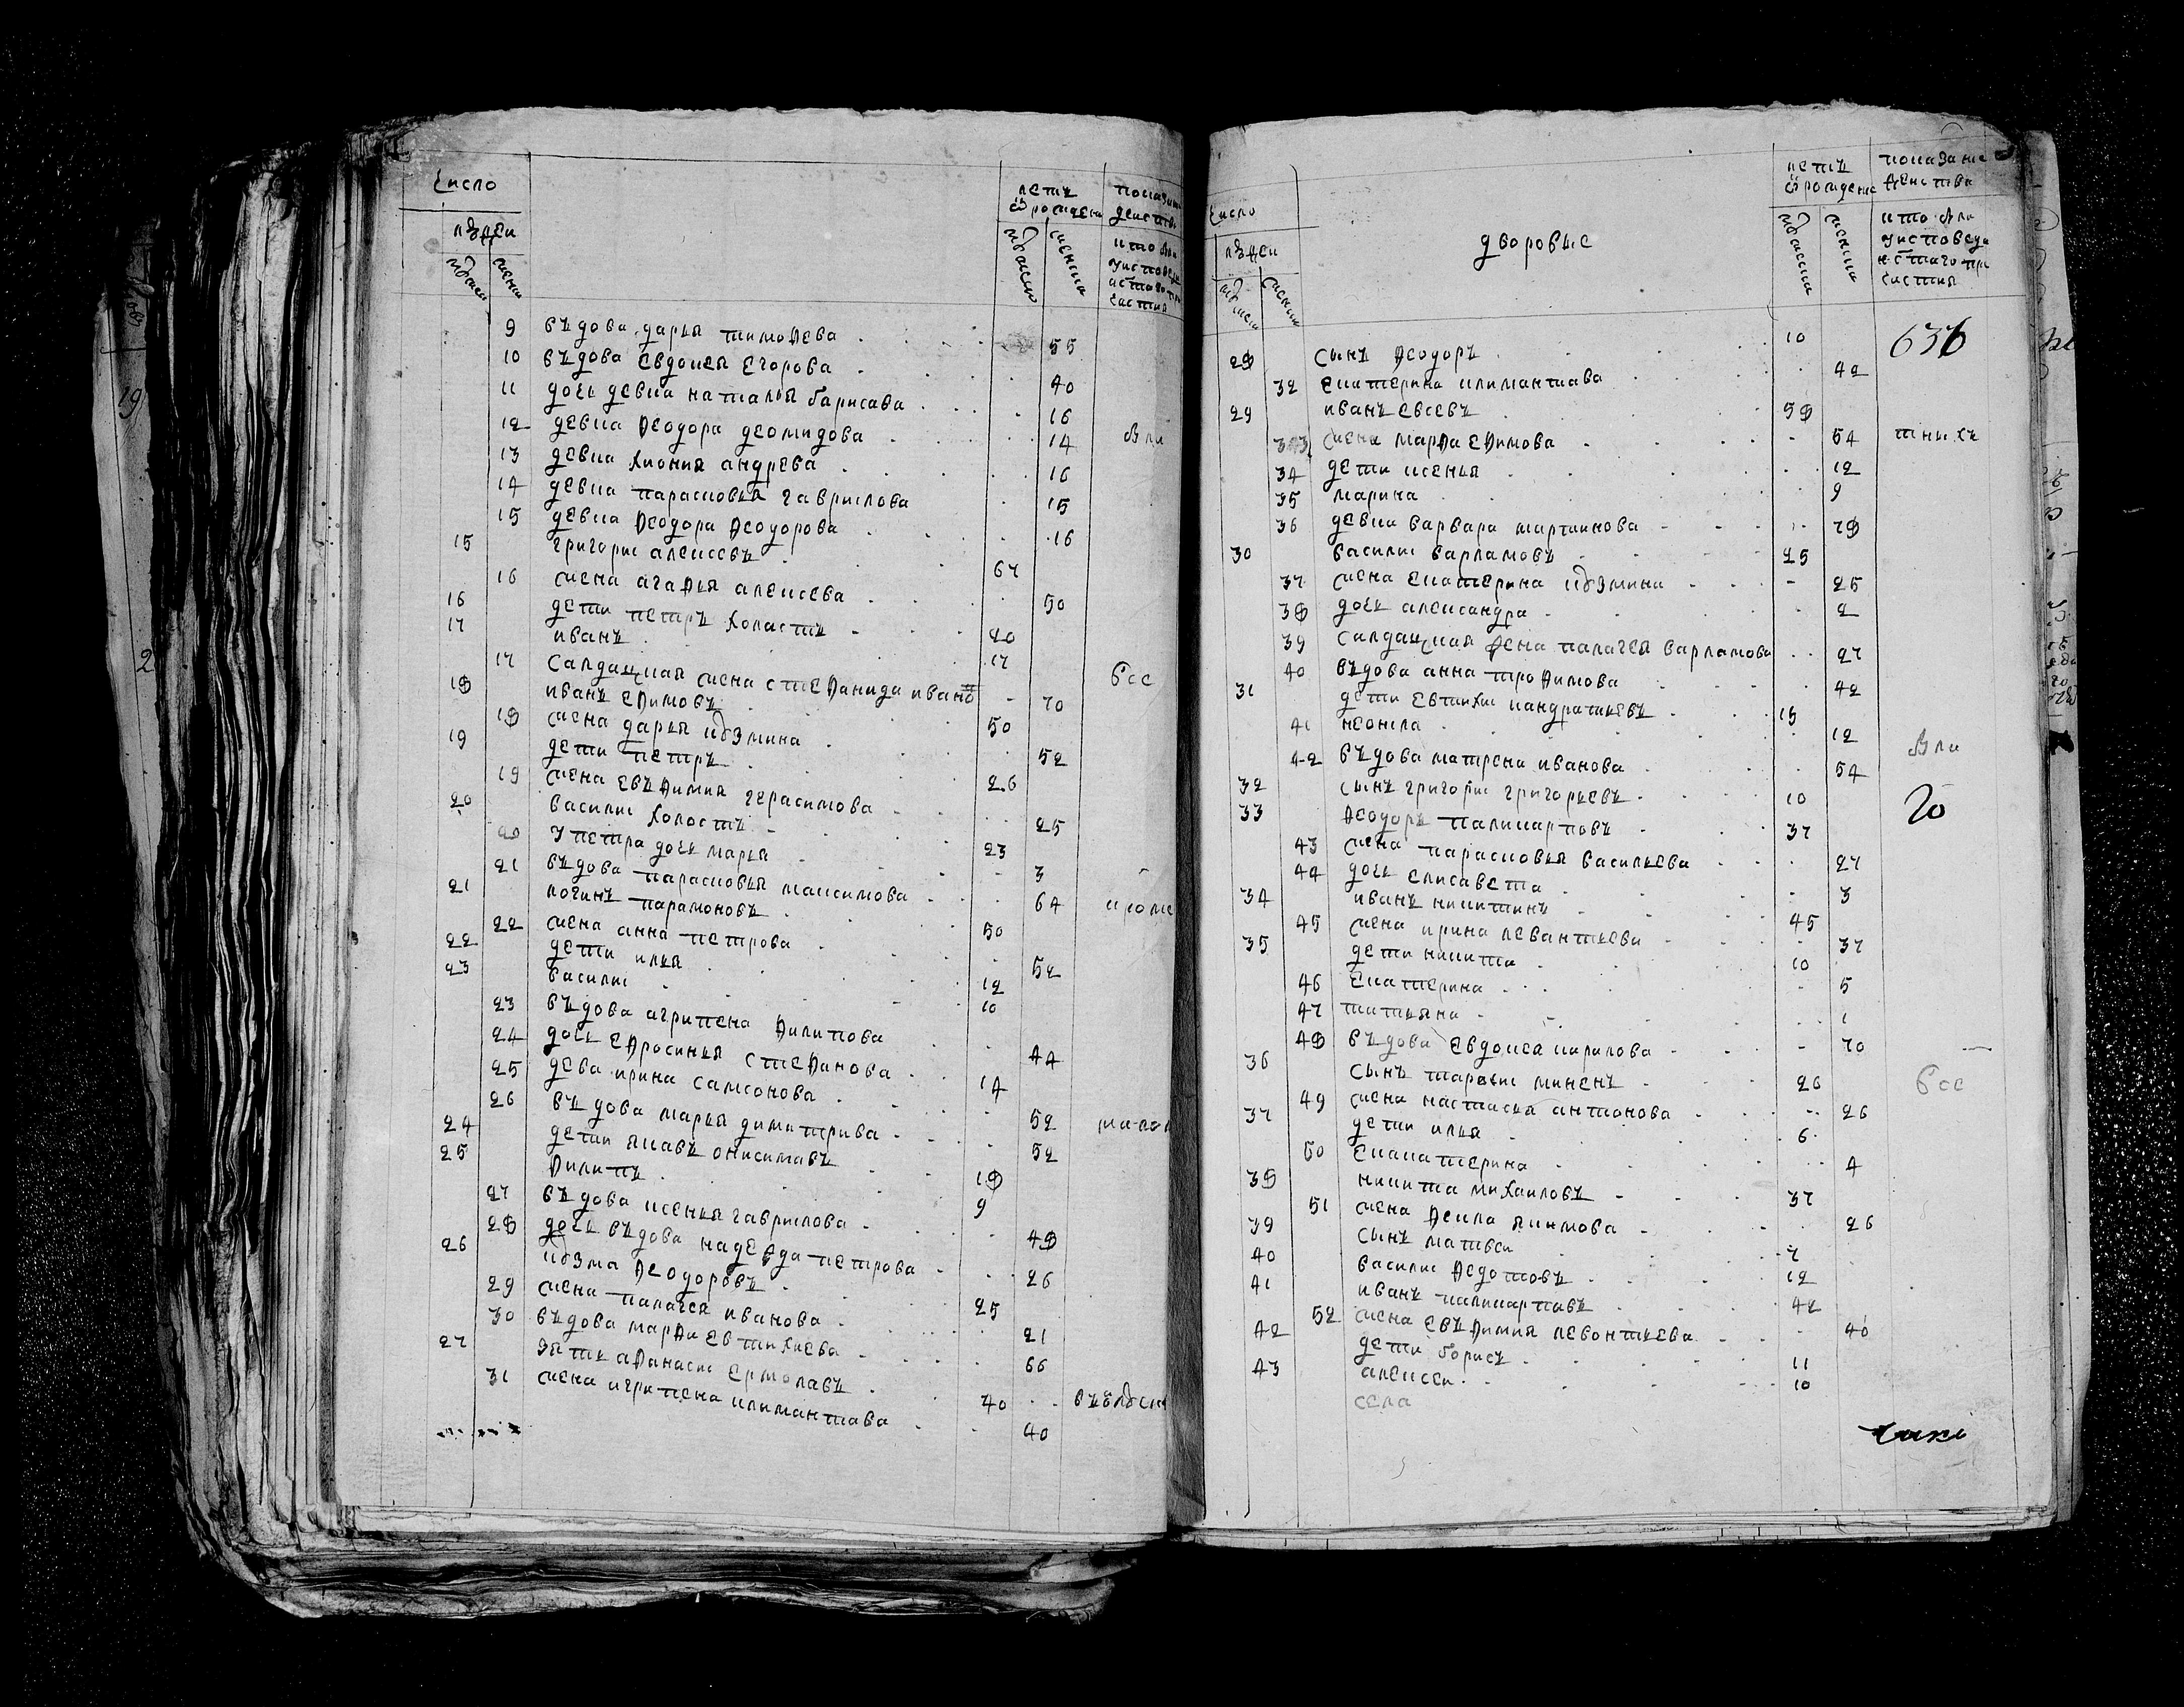 число
людеи
мужеска
женска
летъ
ѿ рожден
мужеско
женска
показан
деиств
кто были
у исповед
и стаго при
частия
9 въдова дарья тимоѳева 55
10 въдова евдокея егорова 40
11 дочь девка наталья барисава 16
12 девка ѳеодора деомидова 14 были
13 девка хиония андрева 16
14 девка парасковья гаврилова 15
15 девка ѳеодора ѳеодорова 16
15 григори алексевъ 67
16 жена агаѳья алексева 50
16 дети петръ холастъ 20
17 иванъ 17
17 салдацкая жена стеѳанида ивано 70 все
18 иванъ еѳимовъ 50
18 жена дарья кузмина 52
19 дети петръ 26
19 жена евъѳимия герасимова 25
20 василии холостъ 23
20 у петра дочь марья 3
21 въдова парасковья максимова 64
21 логинъ парамоновъ 50 кроме
22 жена анна петрова 52
22 дети илья 12
23 василии 10
23 въдова агрипена ѳилипова 44
24 дочь еѳросинья стеѳанова 14
25 дева ирина самсонова 52
26 въдова марья димитрива 52
24 дети якавъ онисимавъ 18
25 ѳилипъ 9
27 въдова ксенья гаврилова 48
28 дочь въдова надежда петрова 26
26 кузма ѳеодоровъ 25
29 жена палагея иванова 21
30 въдова марѳа евтихиева 66
27 зять аѳанаси ермолавъ 40
31 жена агрипена климантава 40
число
людеи
женск
дворовые
летъ
ѿ рождение
мужеска
женска
показание
деиства
кто были
у исповеди
и стаго при
частия
28 сынъ ѳеодоръ 10 636
32 екатерина климантава 42
29 иванъ евсевъ 58
33 жена марѳа еѳимова 54
34 дети ксенья 12
35 марина 9
36 девка варвара мартинова 78
30 василии варламовъ 25
37 жена екатерина кузмина 25
38 дочь александра 2
39 салдацкая жена палагея варламова 27
40 въдова анна троѳимова 42
31 дети евтихи кандратьевъ 15
41 неонила 12
42 въдова матрена иванова 54 были
32 сынъ григории григорьевъ 10
33 ѳеодоръ паликарповъ 37
43 жена парасковья васильева 27
44 дочь елисавета 3
34 иванъ никитинъ 45
45 жена ирина левантьева 37
35 дети никита 10
46 екатерина 5
47 татьяна 1
48 въдова евдокея кирилова 70
36 сынъ тараси миненъ 26 все
49 жена настасья антонова 26
37 дети илья 6
50 екакатерина 4
38 никита михаиловъ 37
51 жена ѳекла якимова 26
39 сынъ матвеи 7
40 василии ѳедотовъ 12
41 иванъ паликарпавъ 42
52 жена евъѳимия левонтьева 40
42 дети борисъ 11
43 алексеи 10
села